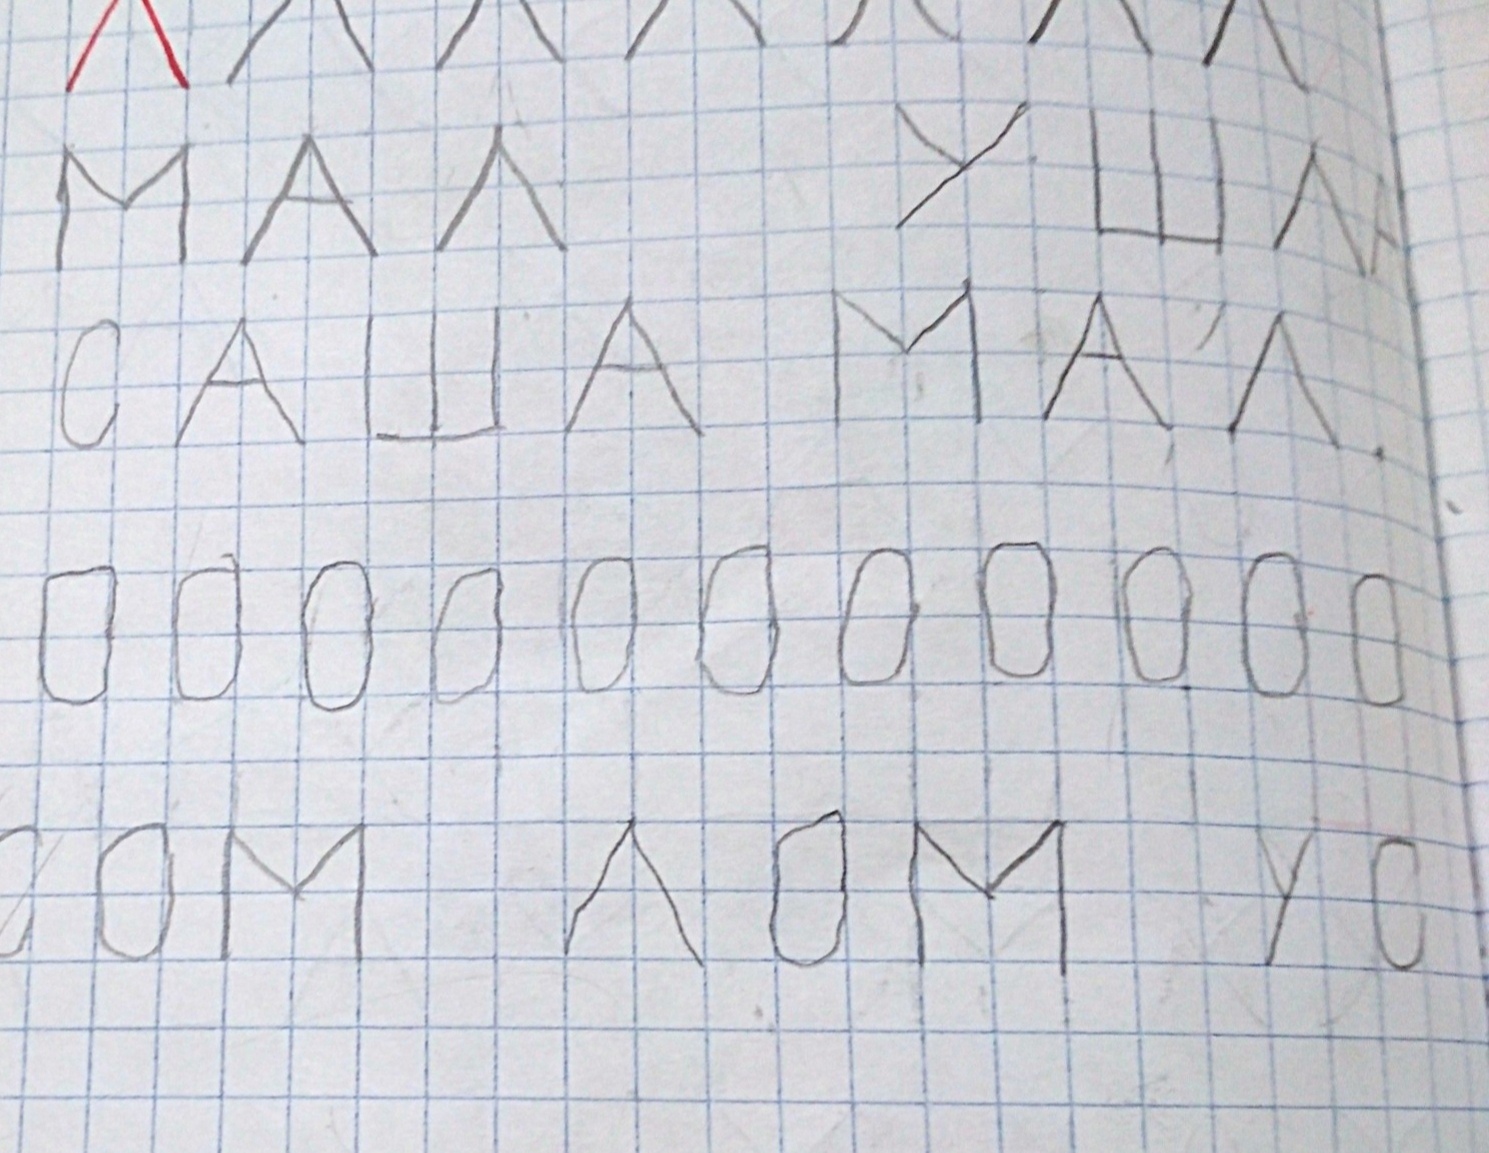 Л Л Л Л Л Л Л
МАЛ УШЛА
САША МАЛ.
О О О О О О О О О О О
СОМ ЛОМ УС